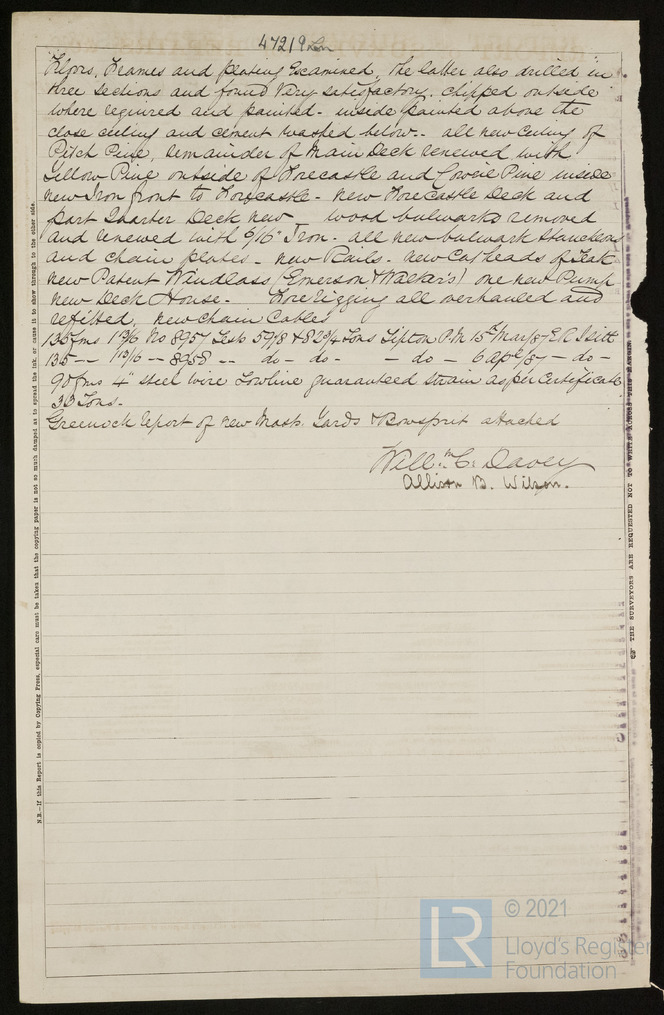 47219 Lon
Floors, Frames and plating Examined, the latter also drilled in
three sections and found very satisfactory. chipped outside
where required and painted - inside painted above the
close ceiling and cement washed below - all new Ceiling of
Pitch Pine, remainder of Main Deck renewed with
Yellow Pine outside of Forecastle and Cowrie Pine inside
new Iron front to Forecastle - new Forecastle Deck and
part Quarter Deck new - wood bulwarks removed
and renewed with 6/16" Iron - all new bulwark Stancheons
and chain plates - new Rails - new Cat Heads of Teak
new Patent Windlass (Emerson & Walker's) one new Pump
new Deck House - Fore Rigging all overhauled and
refitted new Chain Cables
135 fms 1 13/16 No 8957 Test 59 1/8 & 82 3/4 Tons Tipton P.H. 15th Mar/87
135 -- 1 13/16 -- 8958 -- do - do - - do - 6 Apl/87 - do -
90 fms 4" steel wire Towline guaranteed strain as per Certificate
33 Tons -
Greenock report of new Mast Yards & Bowsprit attached
Willm. C. Davey
Allison B. Wilson.
N.B.—If this Report is copied by Copying Press, especial care must be taken that the copying paper is not so much damped as to spread the ink or cause it to show through to the other side.
OF THE SURVEYORS ARE REQUESTED NOT TO WRITE ACROSS THIS MARGIN
LR
© 2021
Lloyd's Register
Foundation